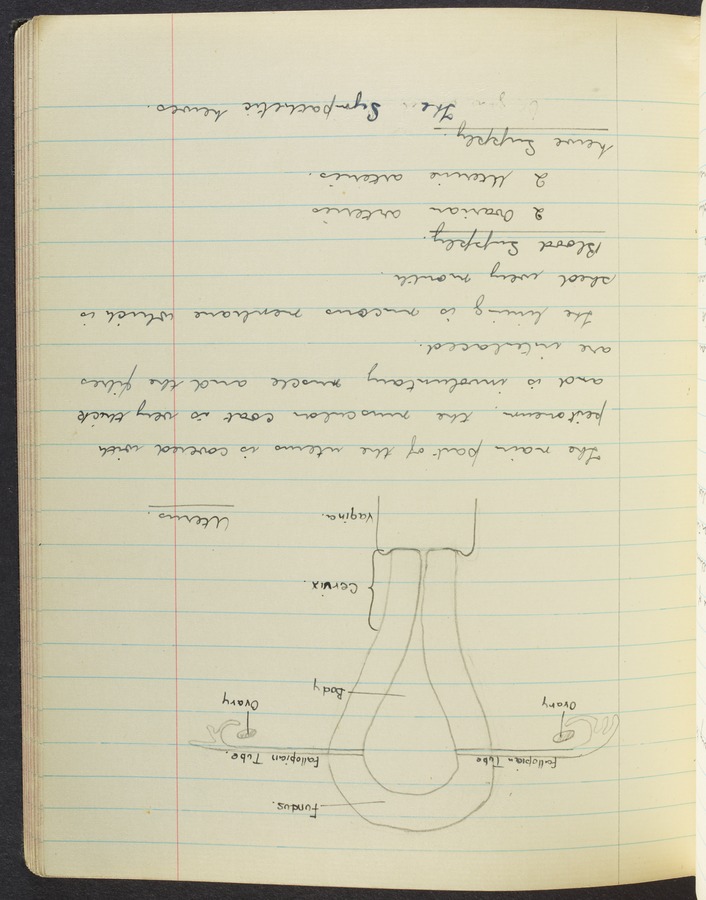 Fundus.
Fallopian Tube
Fallopian Tube.
Ovary
Ovary
Body
Cervix.
vagina.
Uterus.
The main part of the uterus is covered with
peitoneum. the muscular coat is very thick
and is involuntary muscle and the fibres
are interlaced.
The lining is mucous membrane which is
shed every month.
Blood Supply.
2 Ovarian arteries
2 Uterine arteries.
Nerve Supply.
The Sympathetic nerves.